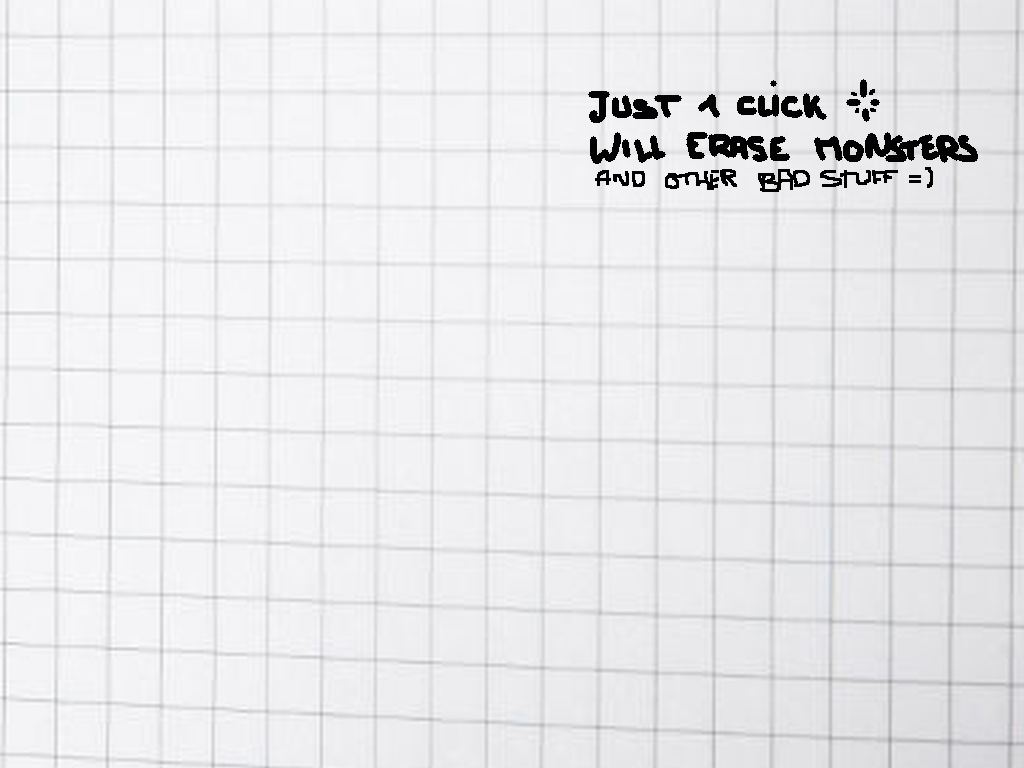 JUST 1 CLICK
WILL ERASE MONSTERS
AND OTHER BAD STUFF =)